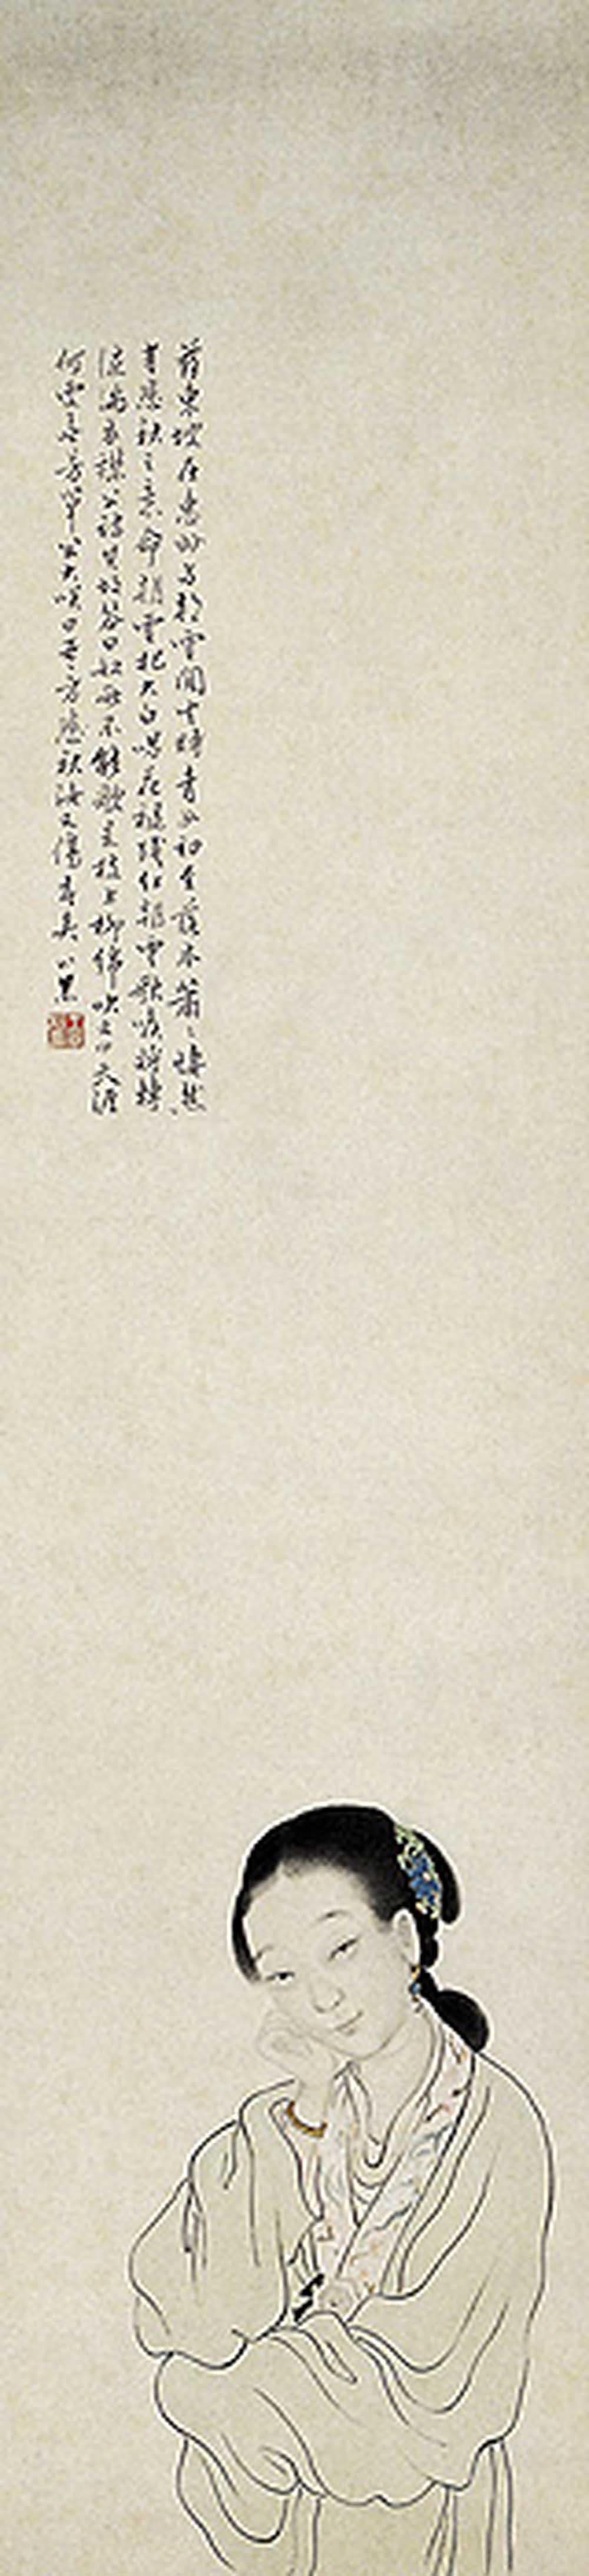 蘇東坡在惠州与朝雲閒坐時青女初至落木蕭〻悽然
有悲秋之意命朝雲把大白唱花褪殘紅朝雲歌喉將轉
淚滿衣襟公詰其故答曰奴所不能歌是枝上柳綿吹又少天涯
何處無芳草公大笑曰吾方悲秋汝又傷春矣 小某